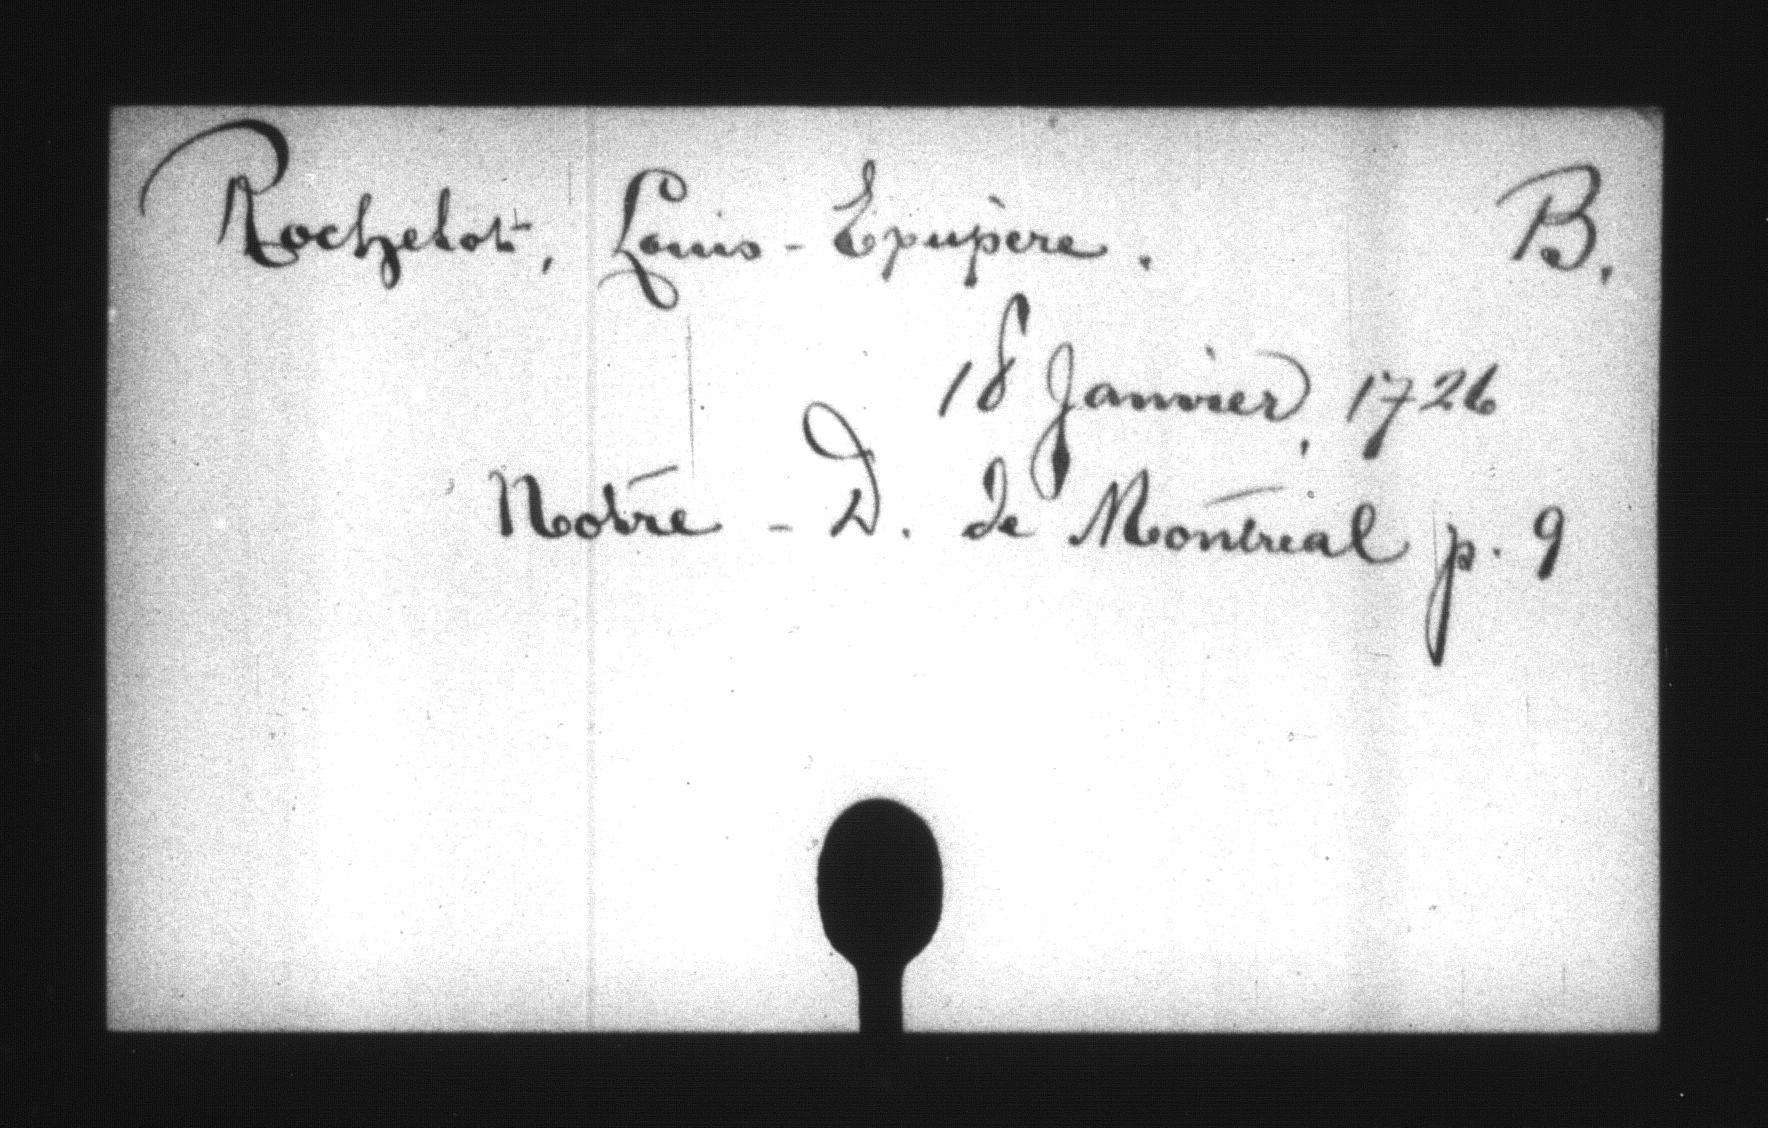 Rochelot, Louis-Epupère. B.
18 Janvier, 1726
Notre-D. de Montréal p. 9